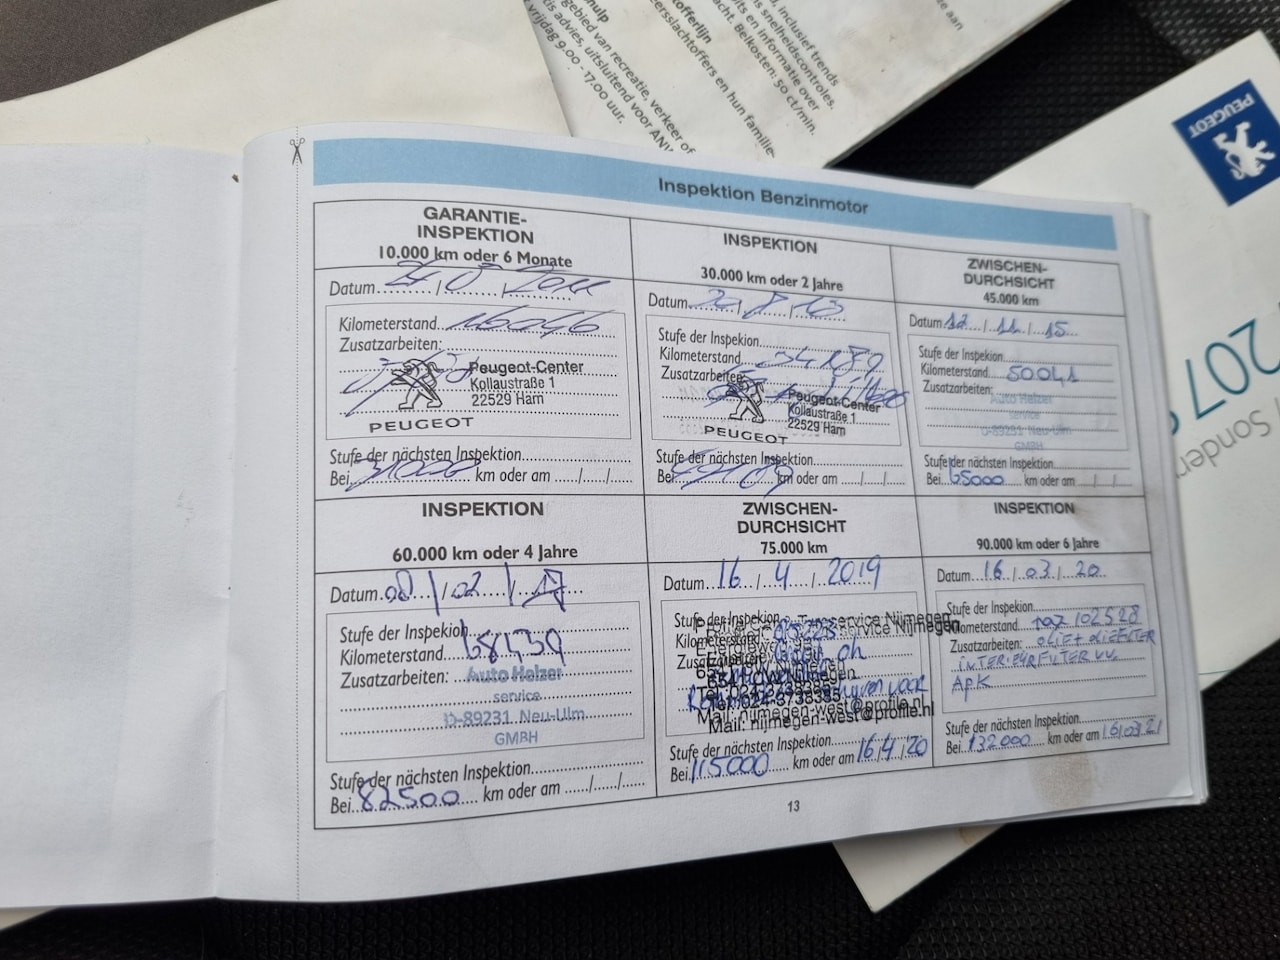 hulp
gebied van recreatie, verkeer of
is advies, uitsluitend voor
vrijdag 9.00 - 17.00 uur.
inclusief trends
snelheidscontroles.
en informatie over
Belkosten: 50 ct/min.
en hun familie-
PEUGEOT
207
Sonder
Inspektion Benzinmotor
GARANTIE-
INSPEKTION
10.000 km oder 6 Monate
Datum
Kilometerstand 16046
Zusatzarbeiten:
Peugeot-Center
Kollaustraße 1
22529 Ham
PEUGEOT
Stufe der nächsten Inspektion
Bei 31000 km oder am
INSPEKTION
30.000 km oder 2 Jahre
Datum
Stufe der Inspektion
Kilometerstand 34189
Zusatzarbeiten
Peugeot-Center
Kollaustraße 1
22529 Ham
PEUGEOT
Stufe der nächsten Inspektion
Bei km oder am
ZWISCHEN-
DURCHSICHT
45.000 km
Datum 12/11/15
Stufe der Inspektion
Kilometerstand 50041
Zusatzarbeiten:
Auto Helzer
service
D-89231 Neu-Ulm
GMBH
Stufe der nächsten Inspektion
Bei 65000 km oder am
INSPEKTION
60.000 km oder 4 Jahre
Datum 08/02/17
Stufe der Inspektion
Kilometerstand 68439
Zusatzarbeiten:
Auto Helzer
service
D-89231 Neu-Ulm
GMBH
Stufe der nächsten Inspektion
Bei 82500 km oder am
ZWISCHEN-
DURCHSICHT
75.000 km
Datum 16/4/2019
Stufe der Inspektion
Kilometerstand
Zusatzarbeiten
Nijmegen
Tel: 024-3738385
Mail: nijmegen-west@profile.nl
Stufe der nächsten Inspektion
Bei 115000 km oder am 16/4/20
INSPEKTION
90.000 km oder 6 Jahre
Datum 16/03/20
Stufe der Inspektion
Kilometerstand 102528
Zusatzarbeiten: OLIE + OLIEFILTER
INTERIEURFILTER VV.
APK
Stufe der nächsten Inspektion
Bei 132000 km oder am 16/03/21
13